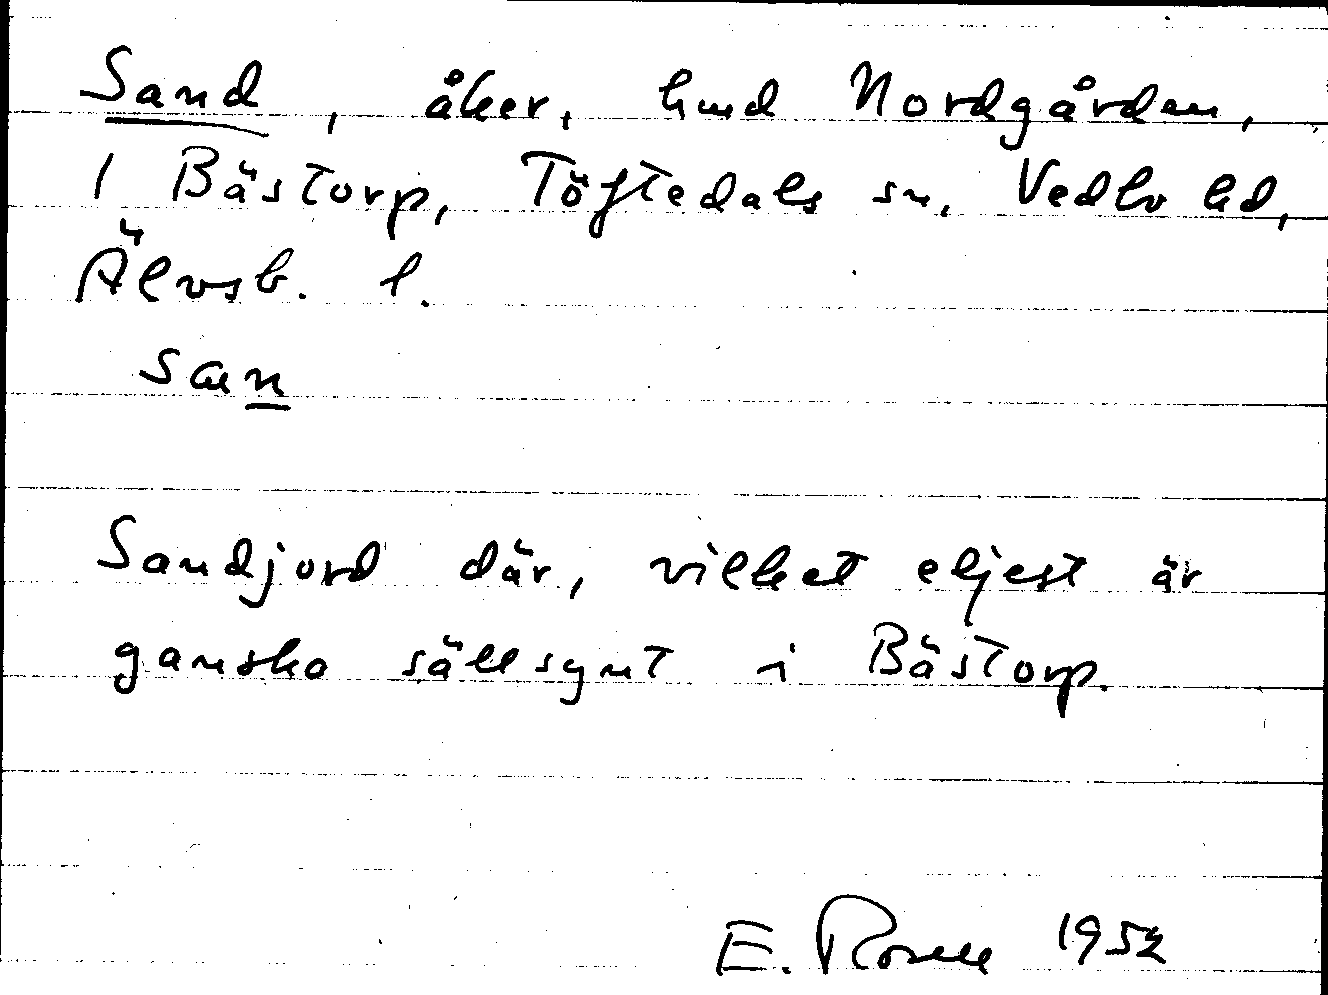 Sand, åker, hmd Nordgården,
1 Bästorp, Töftedals sn, Vedbo hd,
Älvsb. l.
san
Sandjord där, vilket eljest är
ganska sällsynt i Bästorp.
E. Rosell 1952